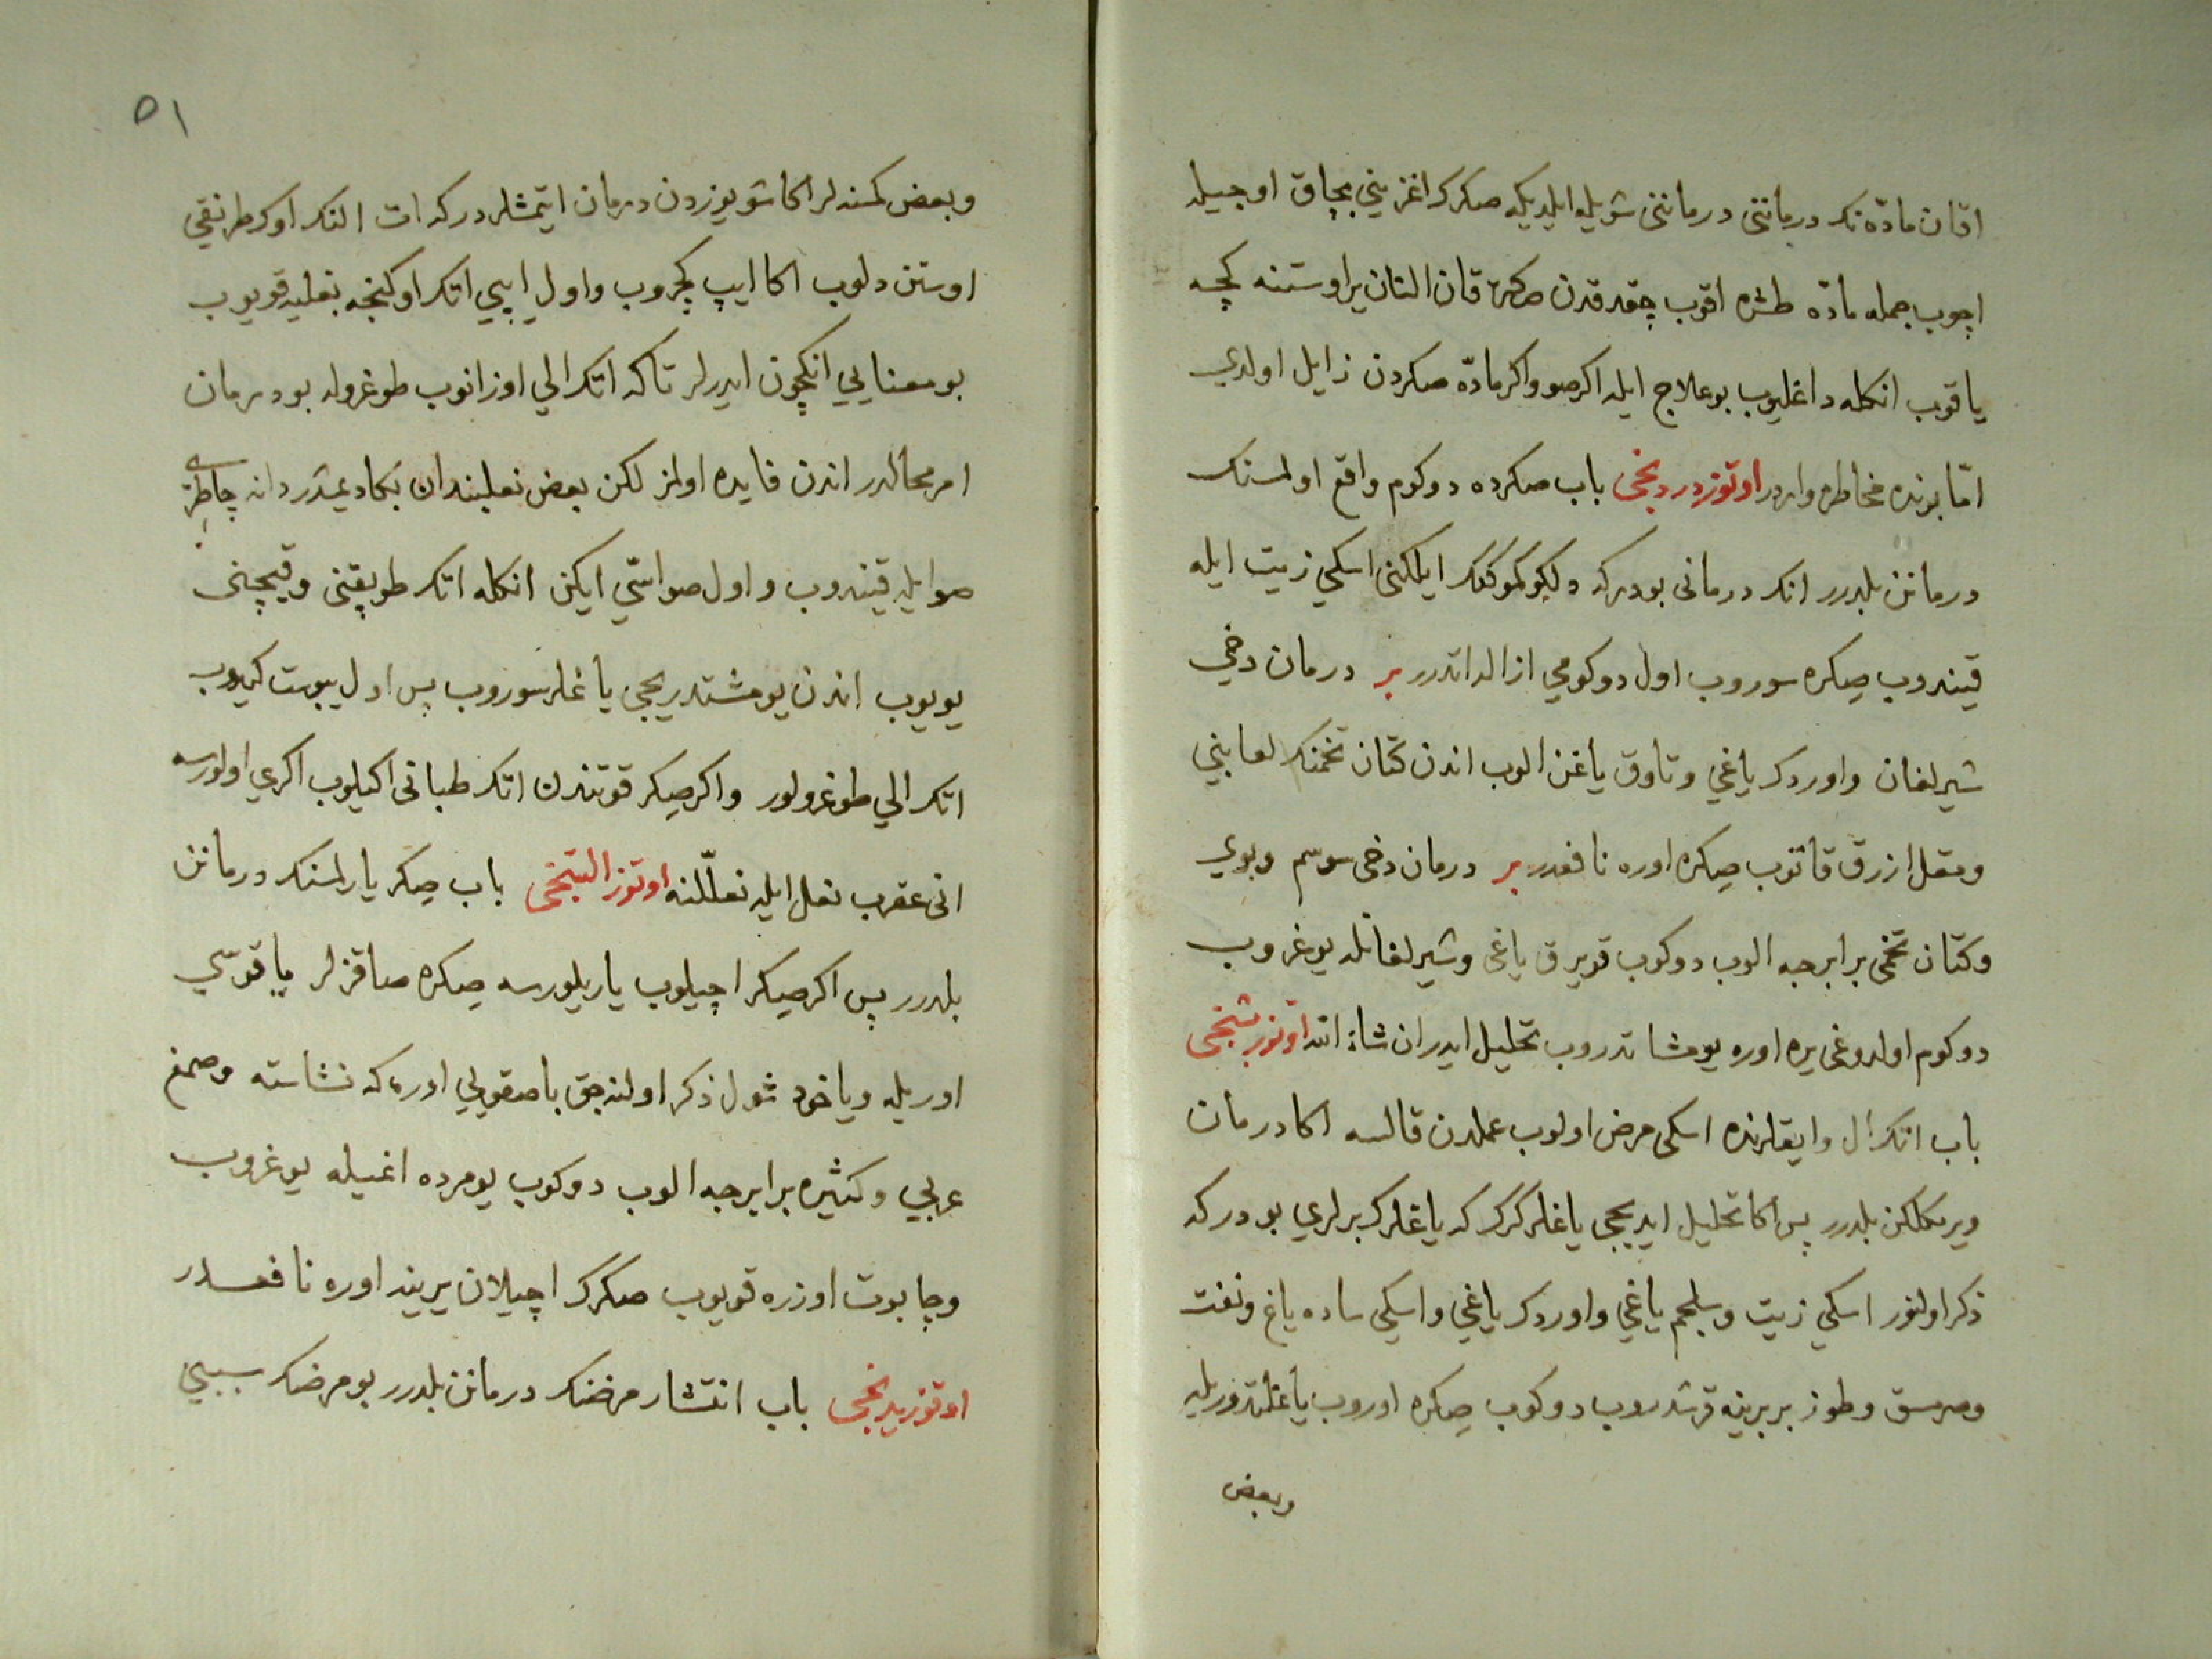 اقان مادّه نك درماننى درماننى شويله ايله يكه صكرك اغزينى بچاق اوجيله
اچوب جمله مادّه طشره اقوب چقدقدن صكره قان التان يراوستنه كچه
ياقوب انكله داغليوب بو علاج ايله اكر صو واكر مادّه صكردن زايل اولدي
امّا بونده مخاطره واردر اوتوزدردنجى باب صكرده دوكوم واقع اولسنك
درمانن بلدرر انك درمانى بودركه دلكو كموكنك ايلكنى اسكي زيت ايله
قيندروب صكره سوروب اول دوكومي ازاله اتدرر بر درمان دخي
شيرلغان واوردك ياغي وتاوق ياغن الوب اندن كتان تخمنك لعابني
ومقل ازرق قاتوب صكره اوره نافعدر بر درمان دخى سوسم وبوي
وكتان تخمى برابرجه الوب دوكوب قويرق ياغى وشيرلغانله يوغروب
دوكوم اولدوغى يره اوره يومشاتدروب تحليل ايدر ان شاء الله اوتوز بشنجى
باب اتك ال وايقلرنده اسكى مرض اولوب عملدن قالسه اكا درمان
ويرمكلكن بلدرر پس اكا تحليل ايديجى ياغلر كرك كه ياغلرك برلري بودركه
ذكر اولنور اسكي زيت وسلجم ياغي واوردك ياغي واسكي ساده ياغ ونفت
وصرمسق وطوز بربرينه قرشدروب دوكوب صكره اوروب ياغلتدوريله
وبعض
٥١
وبعض كمسنه لر اكا شو يوزدن درمان ايتمشلردركه ات النك اوكرطرنقي
اوستن دلوب اكا ايپ كچروب واول ايپي اتك اوكنجه نعليه قويوب
بو معنايي انكچون ايدرلر تاكه اتك الي اوزانوب طوغروله بو درمان
امر محالدر اندن فايده اولمز لكن بعض نعلبندان بكا ديمشدر دانه چاطرسى
صو ايله قيندروب و اول صو اسّي ايكن انكله اتك طوپقنى وقيچنى
يويوب اندن يومشتديريجى ياغلر سوروب پس اول يبوست كيدوب
اتك الي طوغرولور واكر صكر قوتندن اتك طبانى اكيلوب اكري اولورسه
انى عقرب نعل ايله نعللّنه اوتوز التنجى باب صكر يارلمسنك درمانن
بلدرر پس اكر صكر اچيلوب ياريلورسه صكره صاقزلر ياقوسي
اوريله وياخود شول ذكر اولنه جق باصقويي اوره كه نشاسته وصمغ
عربي وكثيره برابرجه الوب دوكوب يومرده اغيله يوغروب
وچابوت اوزره قويوب صكرك اچيلان يرينه اوره نافعدر
اوتوز يدنجى باب انتشار مرضنك درمانن بلدرر بو مرضك سببي